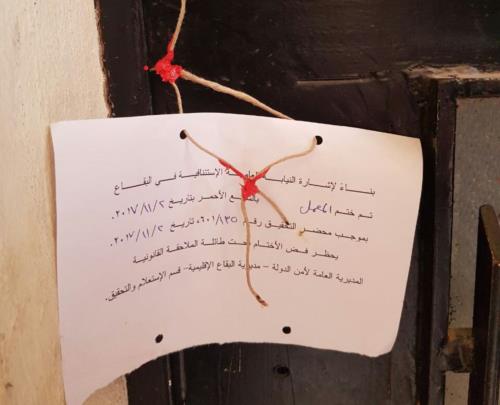 بناءً لإشارة النيابـــة العامـــة الإستئنافية في البقاع
تم ختم المعمل بالشمع الأحمر بتاريخ ٢٠١٧/١١/٢
بموجب محضر التحقيق رقم ٦٠١/١٣٥ تاريخ ٢٠١٧/١١/٢.
يحظر فض الأختام تحت طائلة الملاحقة القانونية
المديرية العامة لأمن الدولة – مديرية البقاع الإقليمية- قسم الإستعلام والتحقيق.